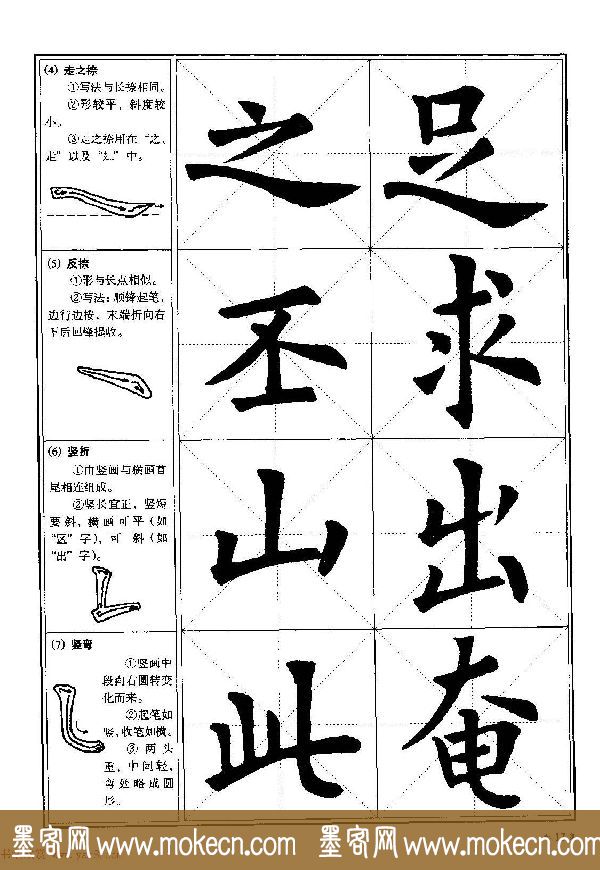 (4) 走之捺
①写法与长捺相同。
②形较平，斜度较
小。
③走之捺用在“之、
走”以及“辶”中。
之 足
(5) 反捺
①形与长点相似。
②写法：顺锋起笔，
边行边按，末端折向右
下后回锋提收。
丕 求
(6) 竖折
①由竖画与横画首
尾相连组成。
②竖长宜正，竖短
要斜，横画可平（如
“区”字），可 斜（如
“出”字）。
山 出
(7) 竖弯
①竖画中
段向右圆转变
化而来。
②起笔如
竖，收笔如横。
③ 两 头
重，中间轻，
弯处略成圆
形。
此 奄
墨客网 www.mokecn.com 墨客网 www.mokecn.com